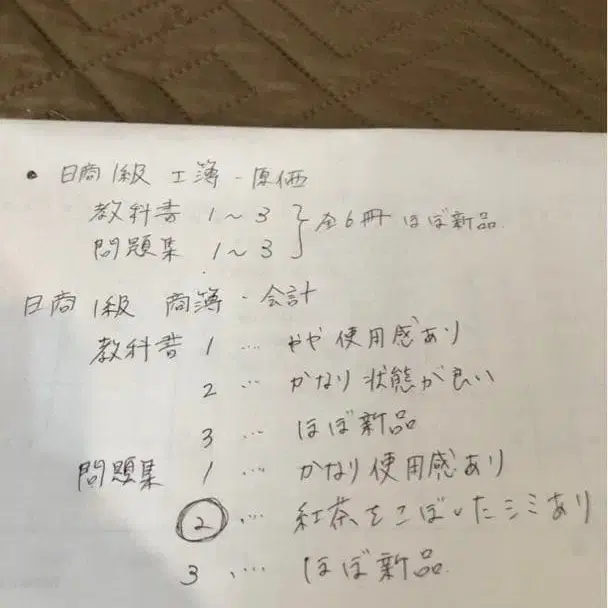 • 日商1級 工簿・原価
教科書 1〜3 } 全6冊 ほぼ新品.
問題集 1〜3
日商1級 商簿・会計
教科書 1 … やや使用感あり
2 … かなり状態が良い
3 … ほぼ新品
問題集 1 … かなり使用感あり
② … 紅茶をこぼしたシミあり
3 … ほぼ新品.